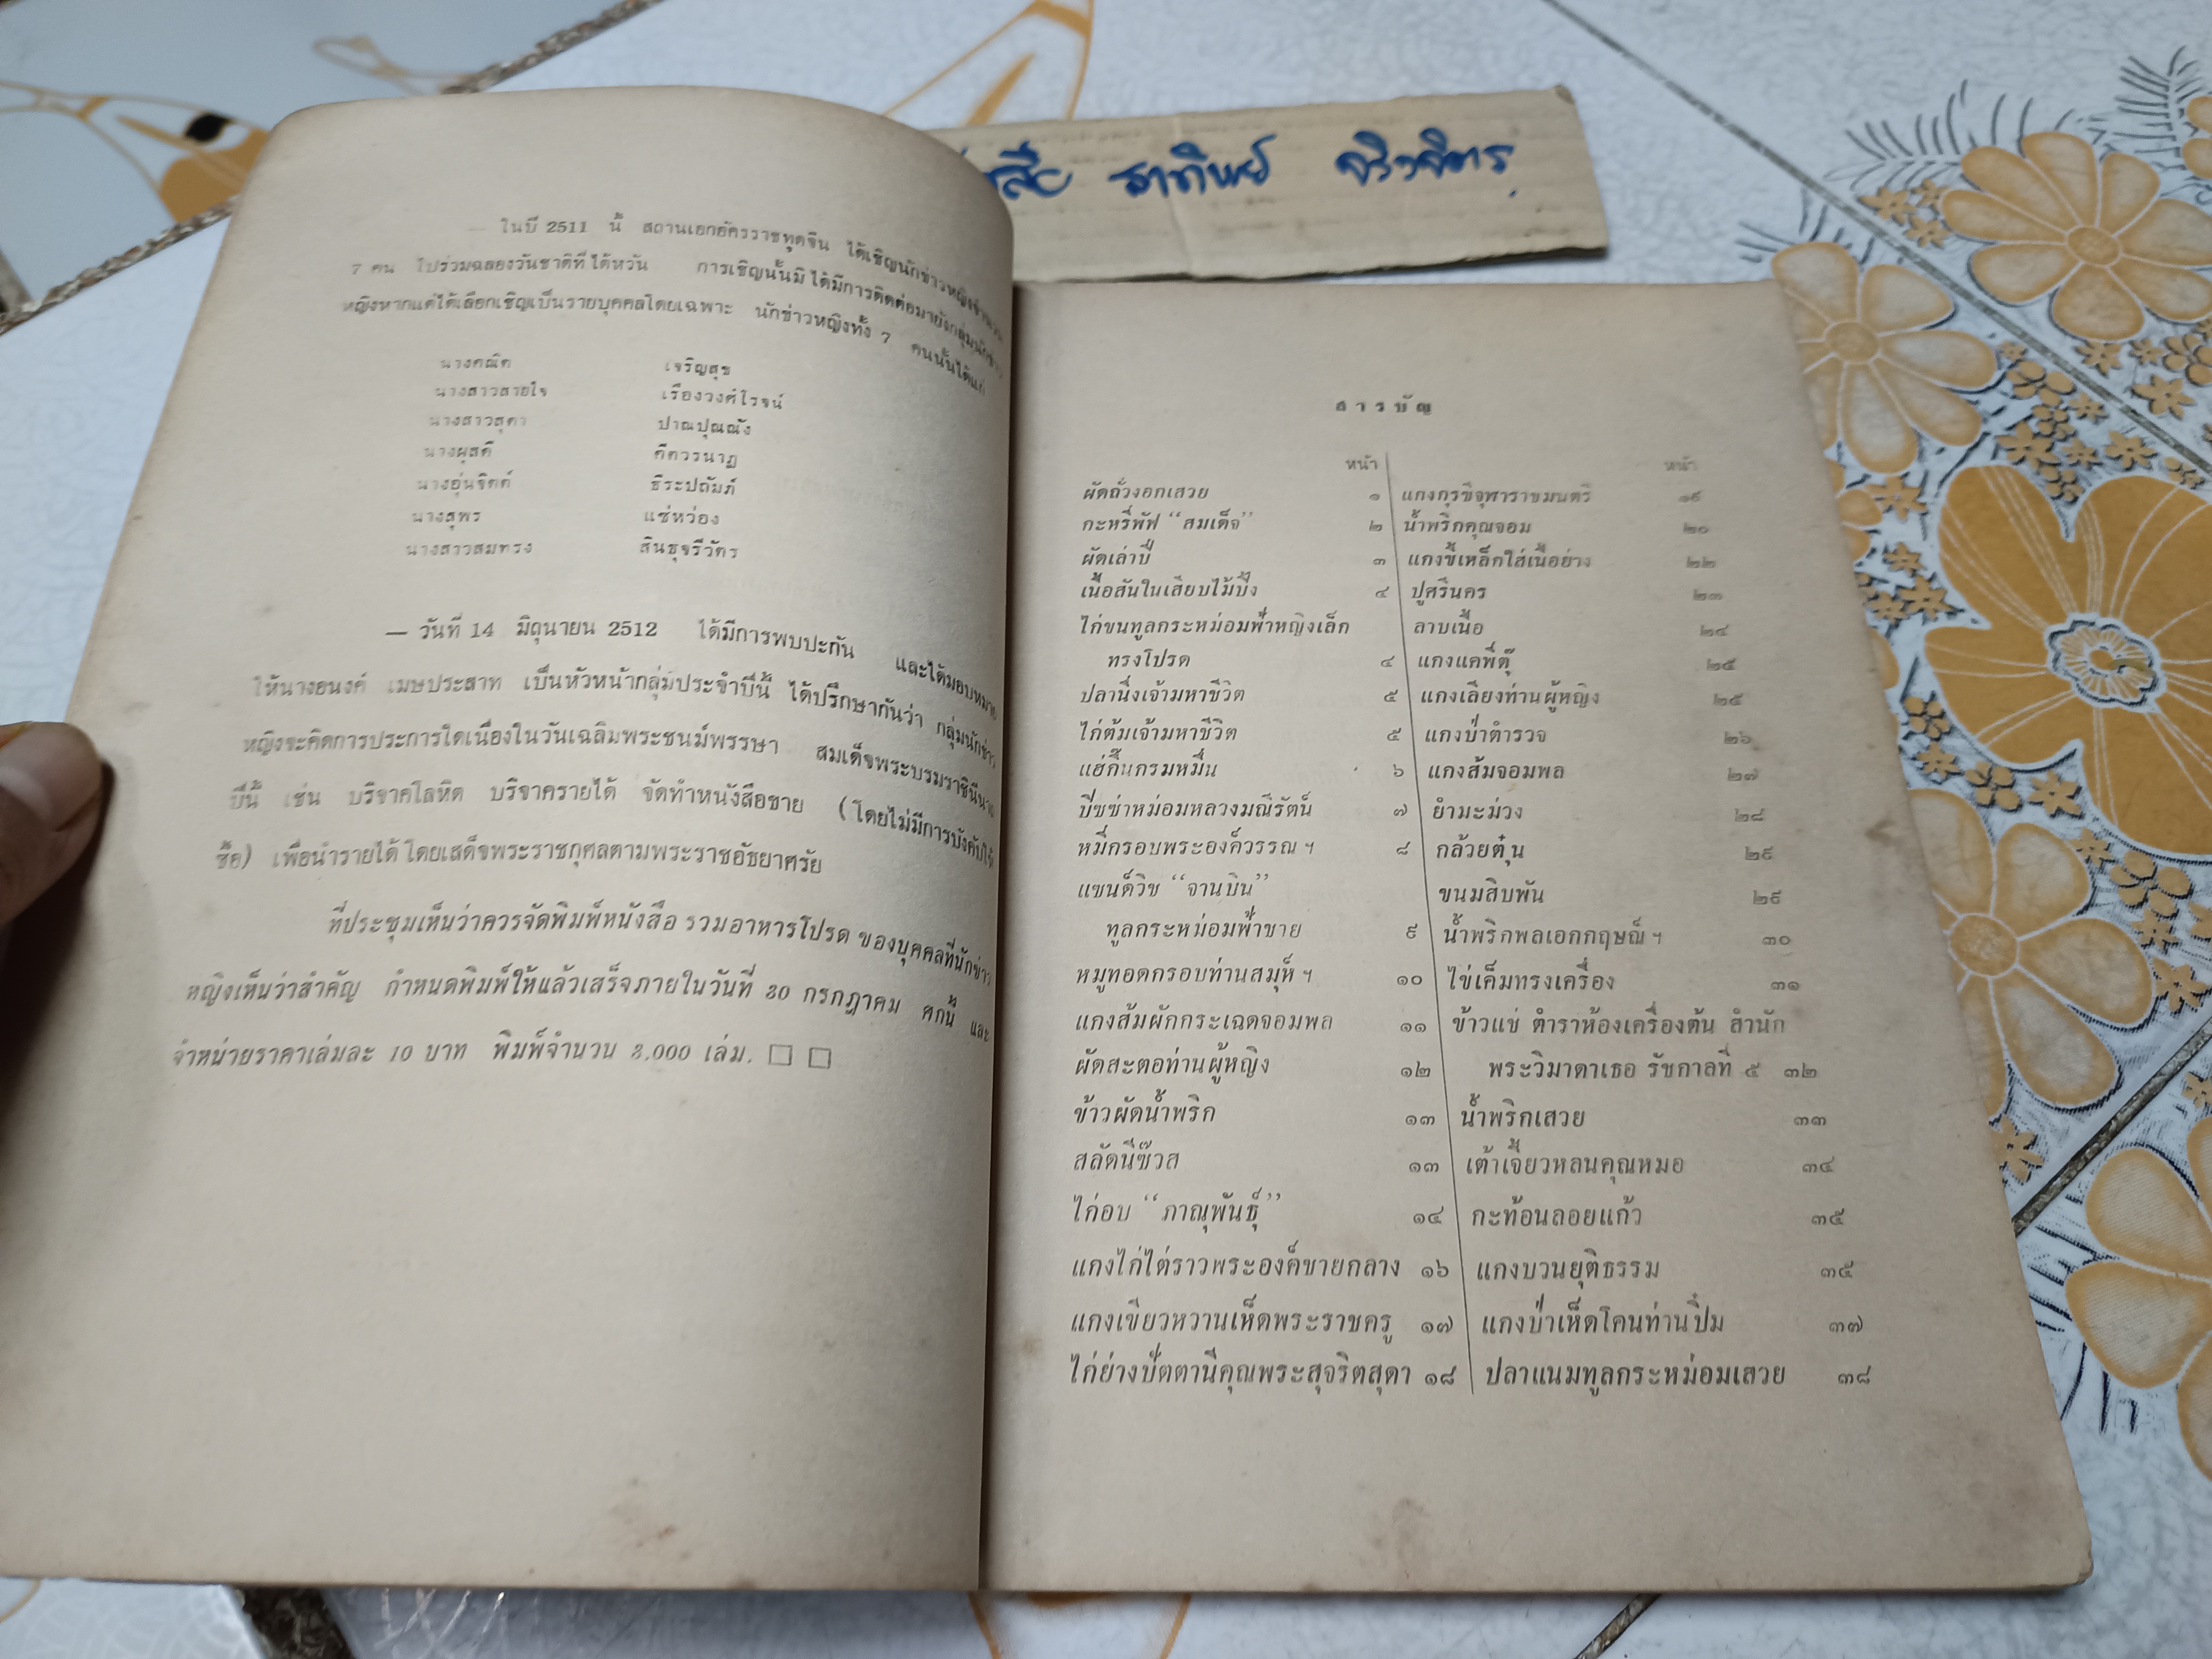 — ในปี 2511 นี้ สถานเอกอัครราชทูตจีน ได้เชิญนักข่าวหญิงจำนวน
7 คน ไปร่วมฉลองวันชาติที่ไต้หวัน การเชิญนั้นมิได้มีการติดต่อมายังกลุ่มนักข่าว
หญิงหากแต่ได้เลือกเชิญเป็นรายบุคคลโดยเฉพาะ นักข่าวหญิงทั้ง 7 คนนั้นได้แก่
นางคณิต เจริญสุข
นางสาวสายใจ เรืองวงศ์โรจน์
นางสาวสุดา ปาณปุณณัง
นางผุสดี คีตวรนาฏ
นางอุ่นจิตต์ ธีระปถัมภ์
นางสุพร แซ่หว่อง
นางสาวสมทรง สินธุจรีวัตร
— วันที่ 14 มิถุนายน 2512 ได้มีการพบปะกัน และได้มอบหมาย
ให้นางอนงค์ เมษประสาท เป็นหัวหน้ากลุ่มประจำปีนี้ ได้ปรึกษากันว่า กลุ่มนักข่าว
หญิงจะคิดการประการใดเนื่องในวันเฉลิมพระชนม์พรรษา สมเด็จพระบรมราชินีนาถ
ปีนี้ เช่น บริจาคโลหิต บริจาครายได้ จัดทำหนังสือขาย (โดยไม่มีการบังคับให้
ซื้อ) เพื่อนำรายได้โดยเสด็จพระราชกุศลตามพระราชอัธยาศรัย
ที่ประชุมเห็นว่าควรจัดพิมพ์หนังสือ รวมอาหารโปรด ของบุคคลที่นักข่าว
หญิงเห็นว่าสำคัญ กำหนดพิมพ์ให้แล้วเสร็จภายในวันที่ 30 กรกฎาคม ศกนี้ และ
จำหน่ายราคาเล่มละ 10 บาท พิมพ์จำนวน 3,000 เล่ม. □ □
สารบัญ
หน้า
ผัดถั่วงอกเสวย ๑
กะหรี่พัฟ “สมเด็จ” ๒
ผัดเล่าปี่ ๓
เนื้อสันในเสียบไม้ปิ้ง ๔
ไก่ขนทูลกระหม่อมฟ้าหญิงเล็ก
ทรงโปรด ๔
ปลานึ่งเจ้ามหาชีวิต ๕
ไก่ต้มเจ้ามหาชีวิต ๕
แฮ่กึ๊นกรมหมื่น ๖
ปิซซ่าหม่อมหลวงมณีรัตน์ ๗
หมี่กรอบพระองค์วรรณฯ ๘
แซนด์วิช “จานบิน”
ทูลกระหม่อมฟ้าชาย ๙
หมูทอดกรอบท่านสมุห์ฯ ๑๐
แกงส้มผักกระเฉดจอมพล ๑๑
ผัดสะตอท่านผู้หญิง ๑๒
ข้าวผัดน้ำพริก ๑๓
สลัดนีซ๊วส ๑๓
ไก่อบ “ภาณุพันธุ์” ๑๔
แกงไก่ไต่ราวพระองค์ชายกลาง ๑๖
แกงเขียวหวานเห็ดพระราชครู ๑๗
ไก่ย่างปัตตานีคุณพระสุจริตสุดา ๑๘
หน้า
แกงกุรุขิจุฬาราชมนตรี ๑๙
น้ำพริกคุณจอม ๒๐
แกงขี้เหล็กใส่เนื้อย่าง ๒๒
ปูศรีนคร ๒๓
ลาบเนื้อ ๒๔
แกงแคพี่ตุ๊ ๒๕
แกงเลียงท่านผู้หญิง ๒๕
แกงป่าตำรวจ ๒๖
แกงส้มจอมพล ๒๗
ยำมะม่วง ๒๘
กล้วยตุ๋น ๒๙
ขนมสิบพัน ๒๙
น้ำพริกพลเอกกฤษณ์ฯ ๓๐
ไข่เค็มทรงเครื่อง ๓๑
ข้าวแช่ ตำราห้องเครื่องต้น สำนัก
พระวิมาดาเธอ รัชกาลที่ ๕ ๓๒
น้ำพริกเสวย ๓๓
เต้าเจี้ยวหลนคุณหมอ ๓๔
กะท้อนลอยแก้ว ๓๕
แกงบวนยุติธรรม ๓๕
แกงป่าเห็ดโคนท่านปิ๋ม ๓๗
ปลาแนมทูลกระหม่อมเสวย ๓๘